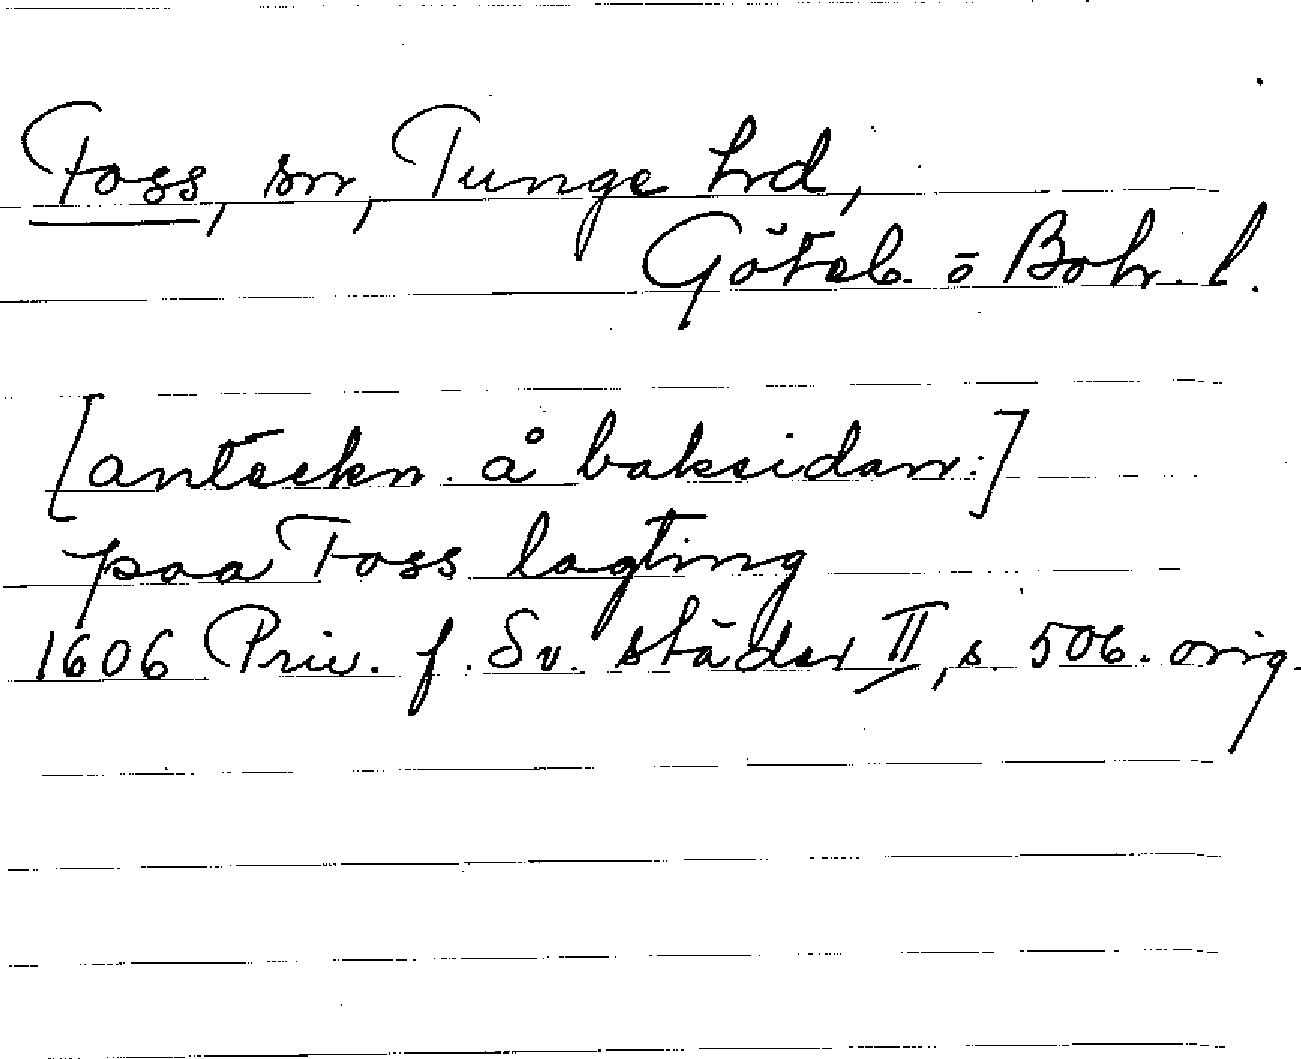 Foss, sn, Tunge hrd,
Göteb. o Boh. l.
[anteckn. å baksidan:]
paa Foss lagting
1606 Priv. f. Sv. städer II, s. 506. orig.